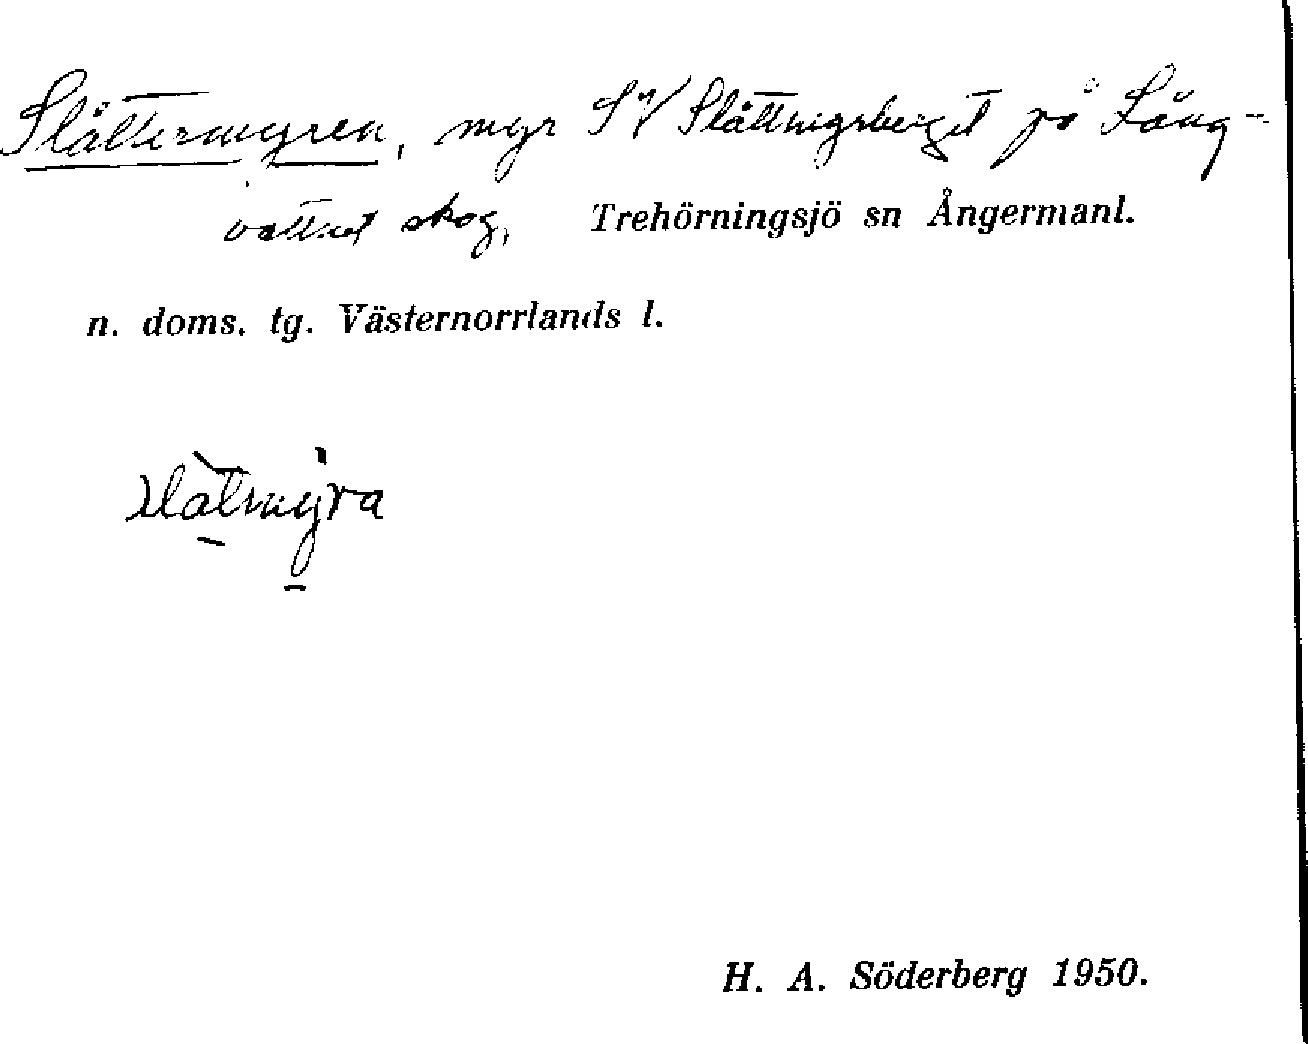 Slåttermyren, myr SV Slåttmyrberget på Lång-
vattnet skog, Trehörningsjö sn Ångermanl.
n. doms. tg. Västernorrlands l.
slàtmỳra
H. A. Söderberg 1950.